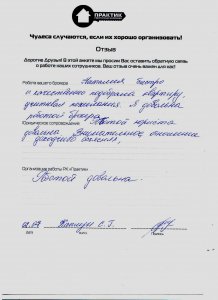 ПРАКТИК
Чудеса случаются, если их хорошо организовать!
Отзыв
Дорогие Друзья! В этой анкете мы просим Вас оставить обратную связь
о работе наших сотрудников. Ваш отзыв очень важен для нас!
Работа вашего брокера Наталия быстро
и качественно подобрала квартиру,
учитывая пожелания. Я довольна
работой брокера.
Юридическое сопровождение Работой юриста
довольна. Внимательное отношение
Организация работы РК «Практик»
Работой довольна.
02.07
Дата
С. Г.
Ф.И.О.
Подпись